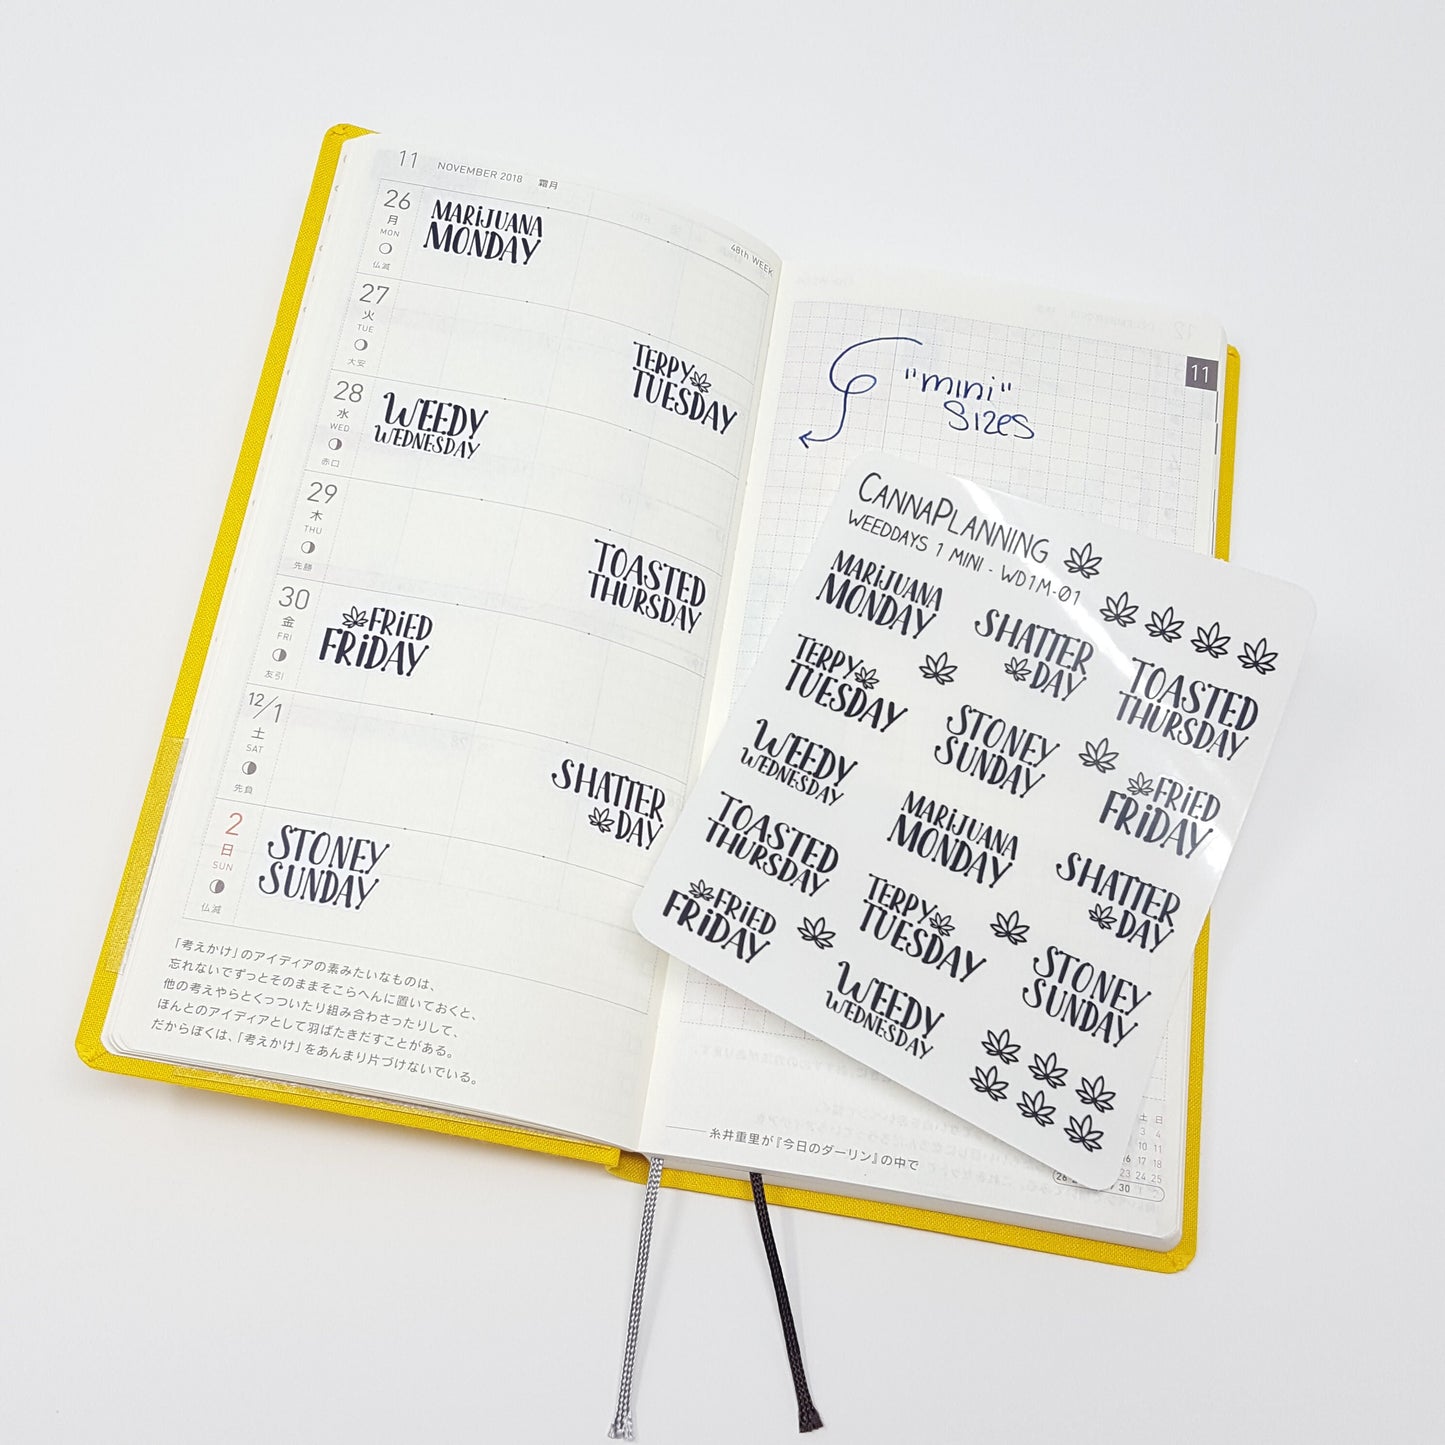 11 NOVEMBER 2018 霜月
48th WEEK
26
月
MON
仏滅
MARiJUANA
MONDAY
27
火
TUE
大安
TERPY
TUESDAY
28
水
WED
赤口
WEEDY
WEDNESDAY
29
木
THU
先勝
TOASTED
THURSDAY
30
金
FRI
友引
FRiED
FRiDAY
12/1
土
SAT
先負
SHATTER
DAY
2
日
SUN
仏滅
STONEY
SUNDAY
「考えかけ」のアイディアの素みたいなものは、
忘れないでずっとそのままそこらへんに置いておくと、
他の考えやらとくっついたり組み合わさったりして、
ほんとのアイディアとして羽ばたきだすことがある。
だからぼくは、「考えかけ」をあんまり片づけないでいる。
11
"mini"
sizes
CANNAPLANNING
WEEDDAYS 1 MINI - WD1M-01
MARiJUANA
MONDAY
SHATTER
DAY
TOASTED
THURSDAY
TERPY
TUESDAY
STONEY
SUNDAY
FRiED
FRiDAY
WEEDY
WEDNESDAY
MARiJUANA
MONDAY
SHATTER
DAY
TOASTED
THURSDAY
TERPY
TUESDAY
STONEY
SUNDAY
FRiED
FRiDAY
WEEDY
WEDNESDAY
土 日
3 4
10 11
16 17 18
23 24 25
26 30 1 2
糸井重里が『今日のダーリン』の中で